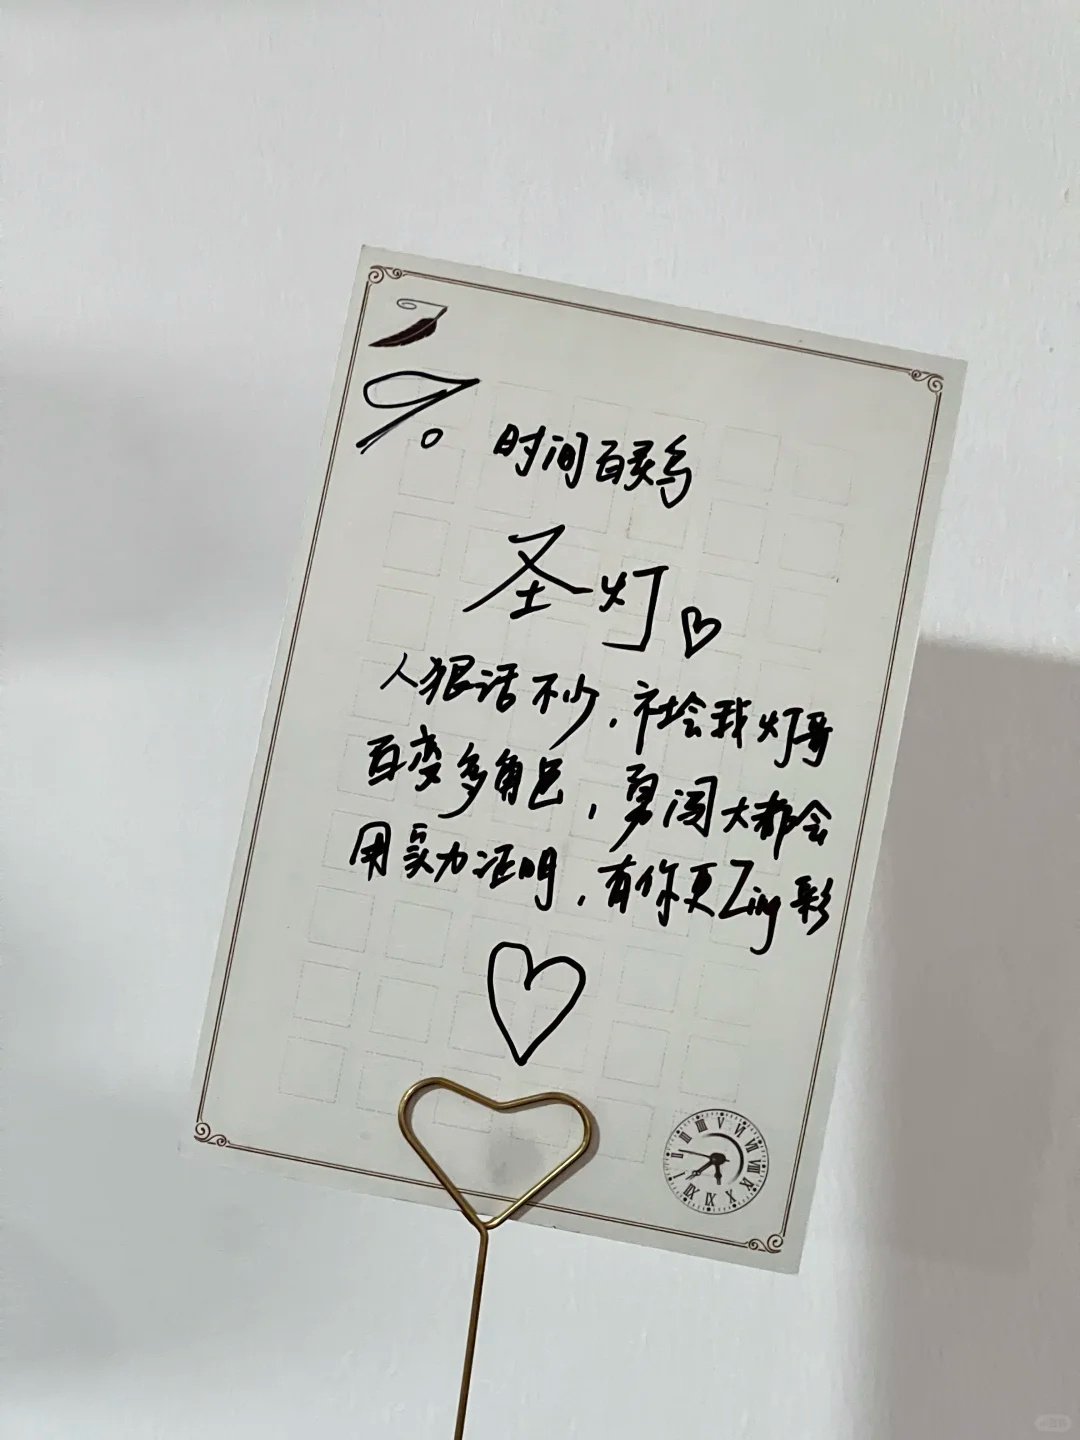 时间百灵鸟
圣灯
人狠话不少，社会我灯哥
百变多角色，勇闯大都会
用实力证明，有你更Zing彩